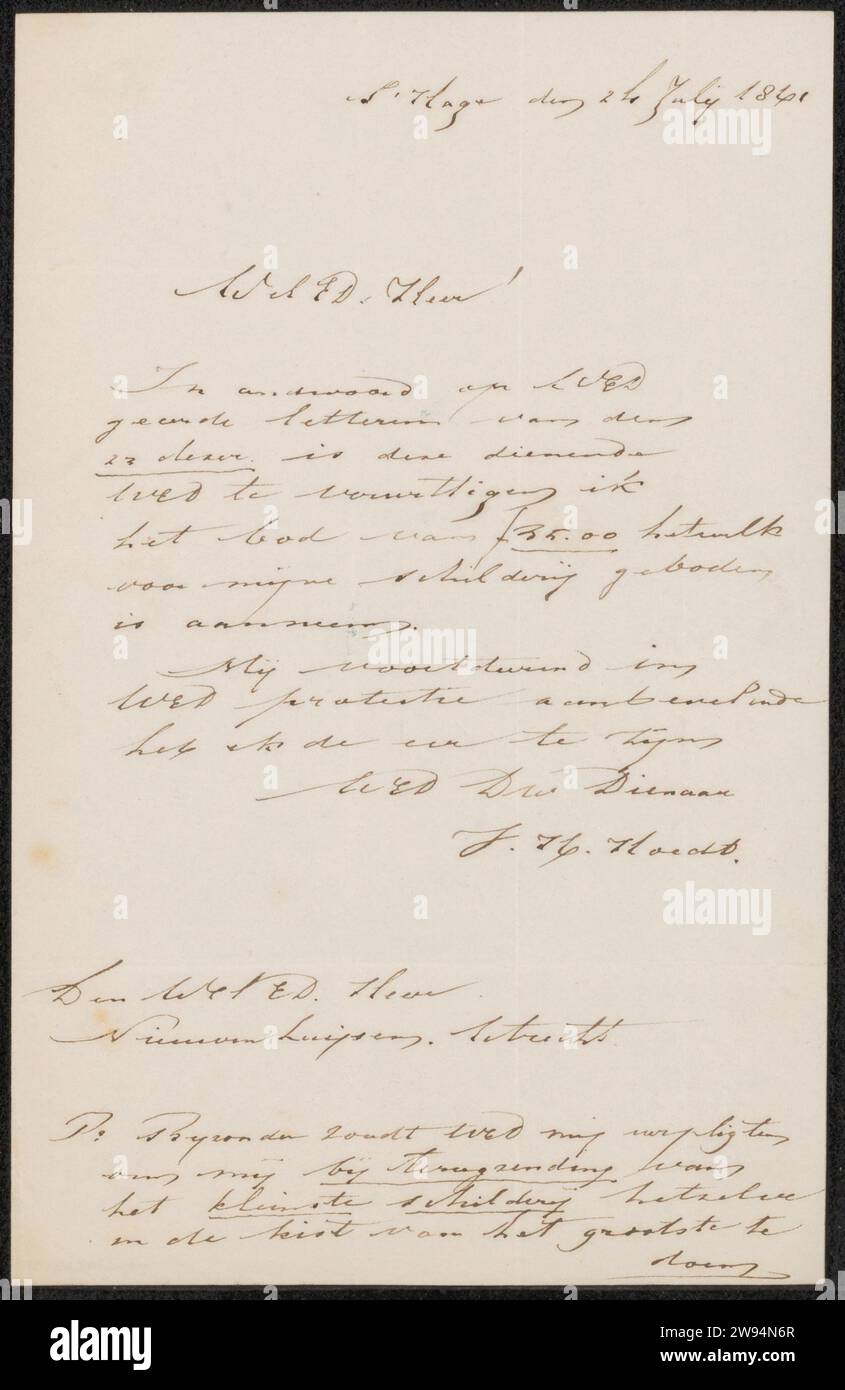 S'Hage den 24 July 1861
WelED. Heer!
In andwoord op WED
geeerde letteren van den
23 dezer. is deze dienende
WED te verwittigen ik
het bod van ƒ35.00 hetwelk
voor mijne schilderij geboden
is aanneem.
Mij voortdurend in
WED protectie aanbevelende
heb ik de eer te zijn
WED Dw Dienaar
J. H. Hoedt.
Den WelED. Heer
Nieuwenhuijsen. Utrecht
Ps Byzonder zoudt WED mij verpligten
om mij bij terugzending van
het kleinste schilderij hetzelve
in de kist van het grootste te
doen
alamy
alamy
Image ID: 2WN94N6R
www.alamy.com